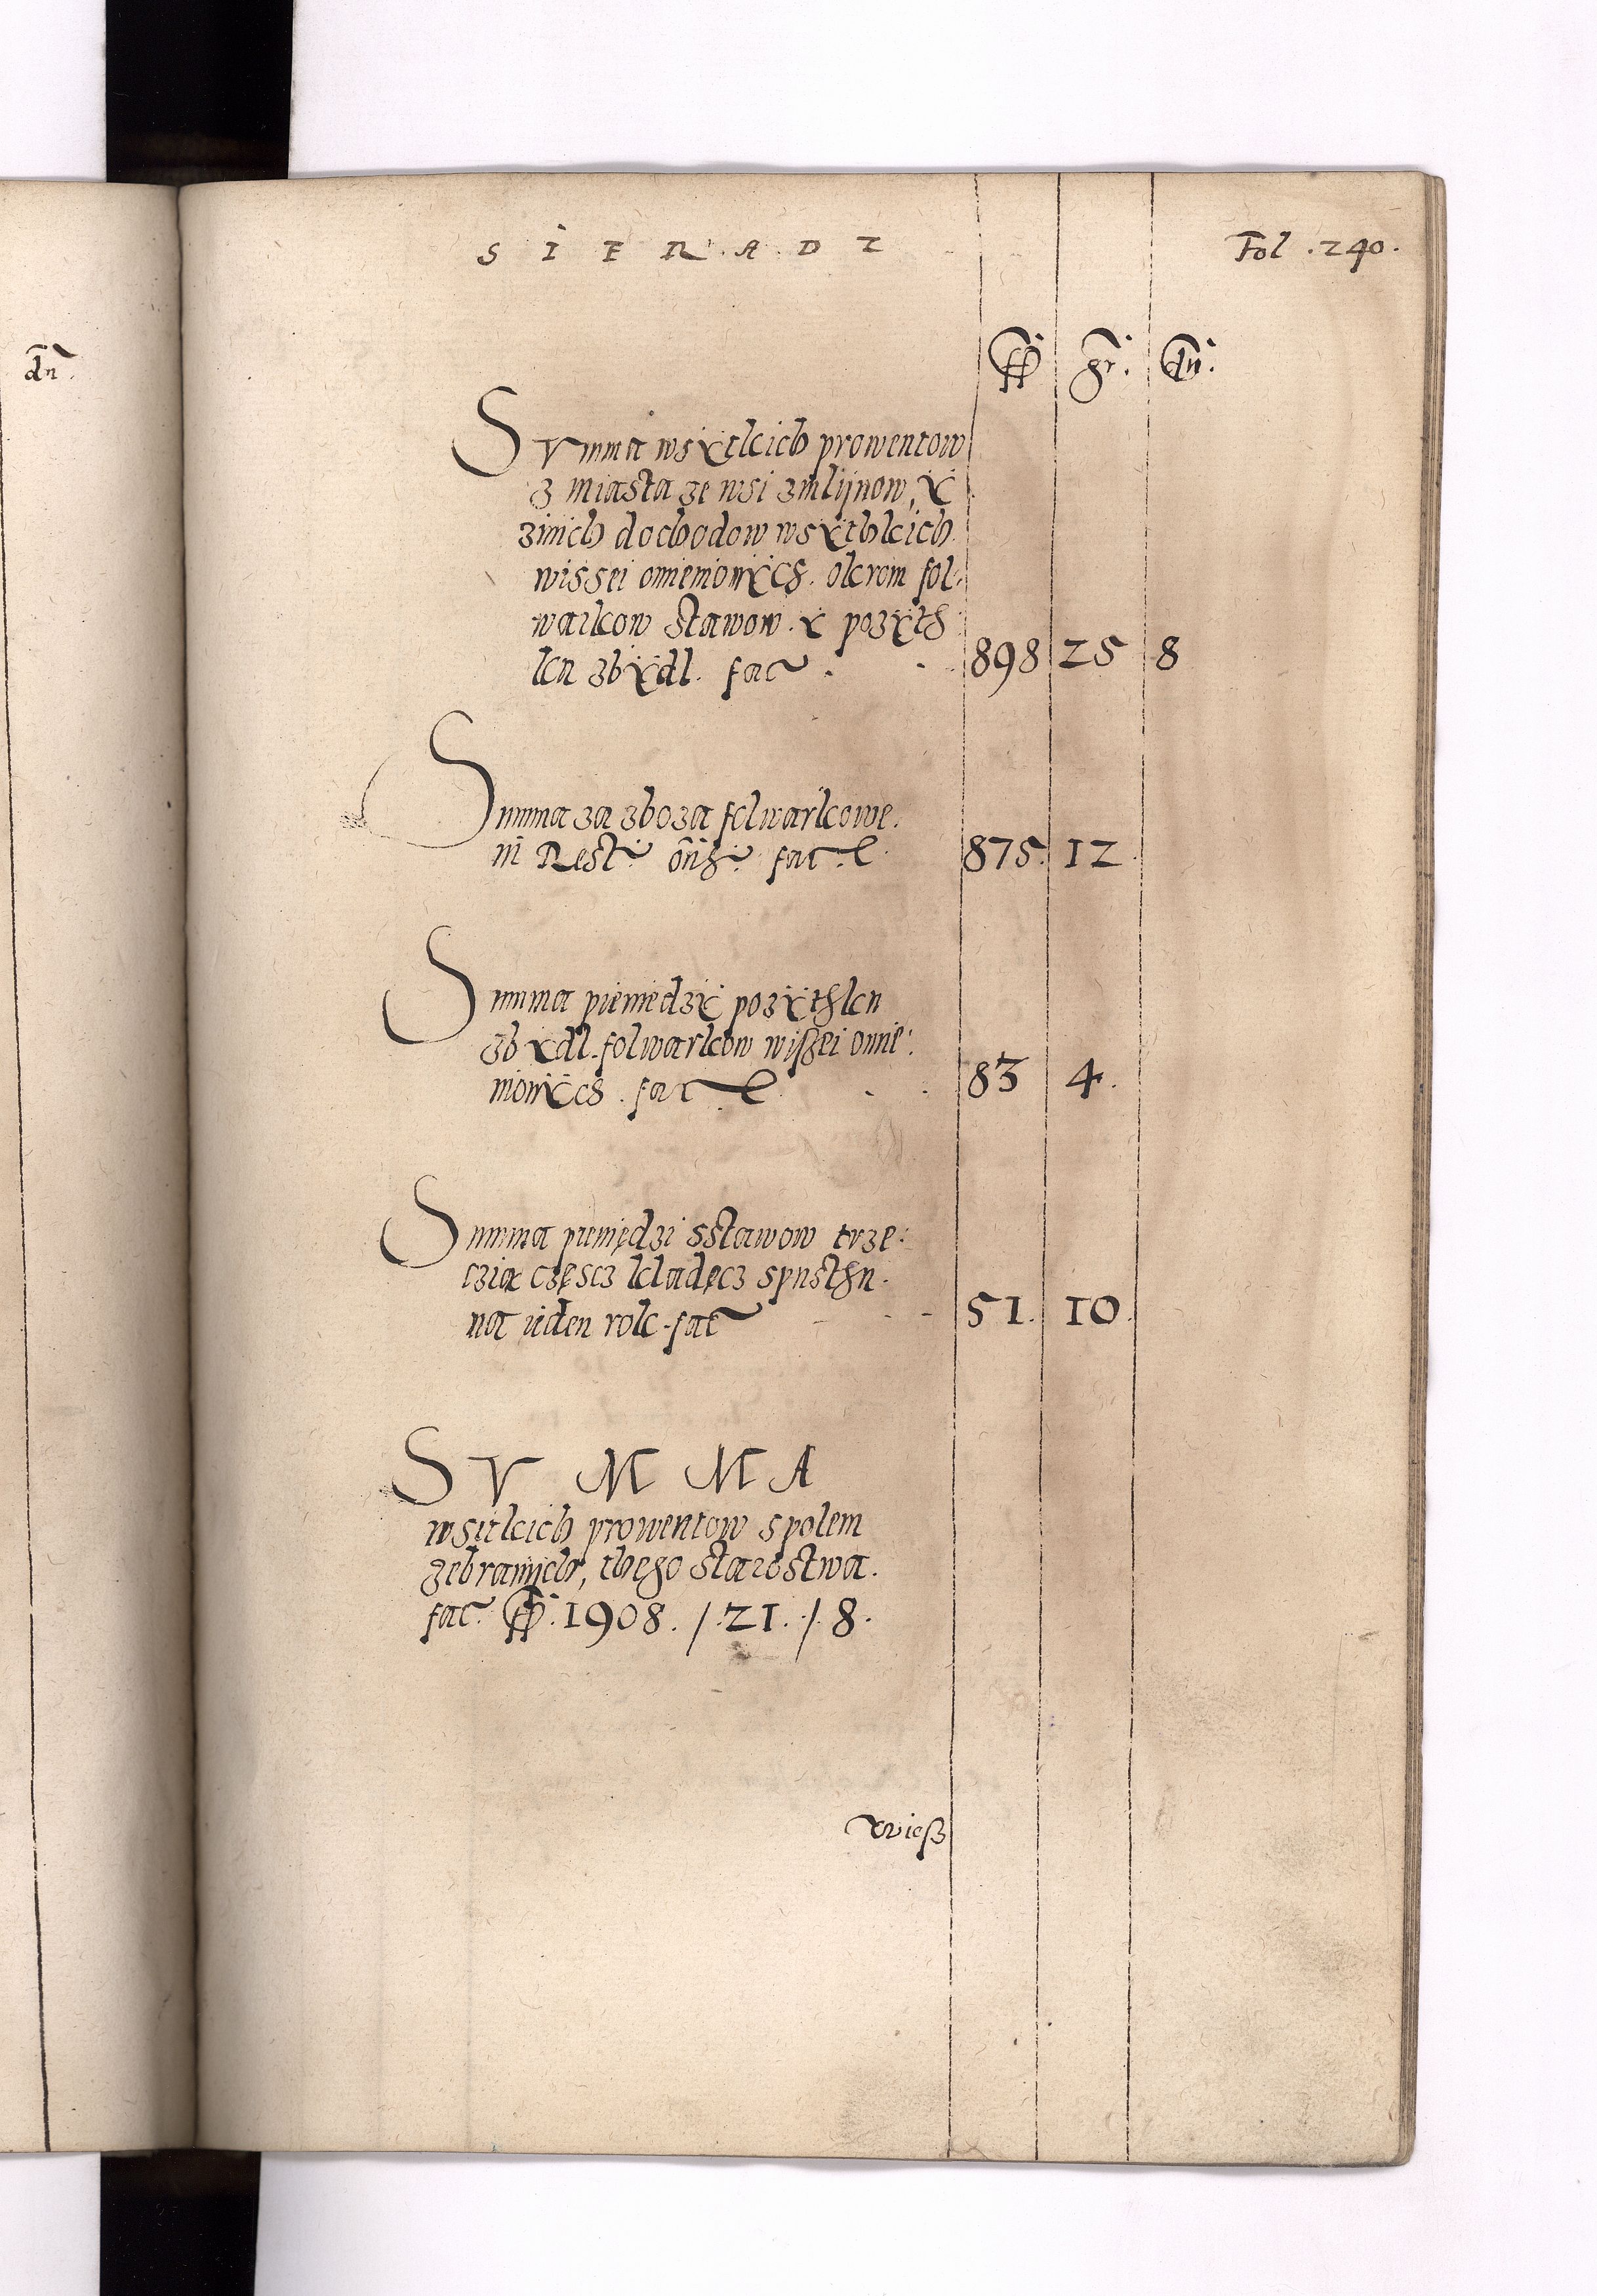 dn̄.
S I E R A D Z
Fol . 240.
ff. gr. dn.
Summa wsÿtkich prowentow
z miasta ze wsi z mlijnow, ÿ
z inich dochodow wsÿthkich
wissei omienionÿch. okrom fol-
warkow stawow. ÿ pozÿth
ku zbÿdl. fac. 898 25 8
Summa za zboza folwarkowe.
in Rest. fac. 875. 12.
Summa pieniedzÿ pozÿthku
zbÿdl. folwarkow wißei omie:
nionÿch. fac 83 4.
Summa pieniędzi sstawow trze:
czia częscz kładęcz spusthu.
na ieden rok. fac 51. 10.
S V M M A
wsitkich prowentow spolem
zebranijch, thego starostwa.
fac. ff. 1908. /. 21. /. 8.